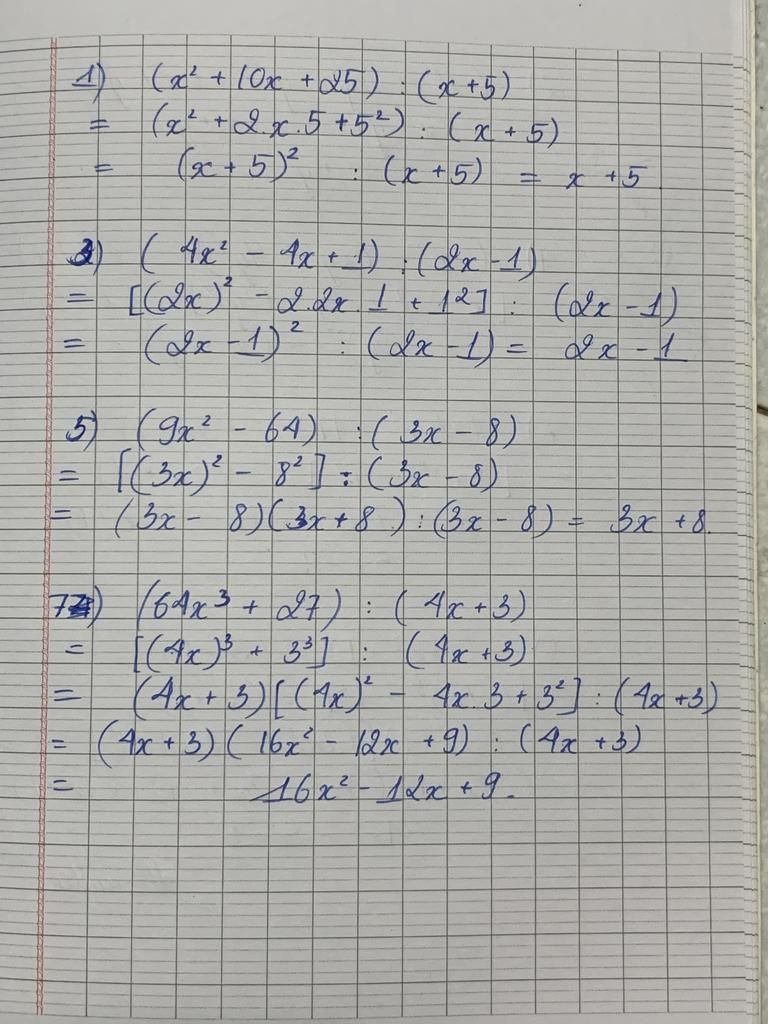 1) (x² + 10x + 25) : (x + 5)
= (x² + 2.x.5 + 5²) : (x + 5)
= (x + 5)² : (x + 5) = x + 5
3) (4x² - 4x + 1) : (2x - 1)
= [(2x)² - 2.2x.1 + 1²] : (2x - 1)
= (2x - 1)² : (2x - 1) = 2x - 1
5) (9x² - 64) : (3x - 8)
= [(3x)² - 8²] : (3x - 8)
= (3x - 8)(3x + 8) : (3x - 8) = 3x + 8.
7) (64x³ + 27) : (4x + 3)
= [(4x)³ + 3³] : (4x + 3)
= (4x + 3)[(4x)² - 4x.3 + 3²] : (4x + 3)
= (4x + 3)(16x² - 12x + 9) : (4x + 3)
= 16x² - 12x + 9.